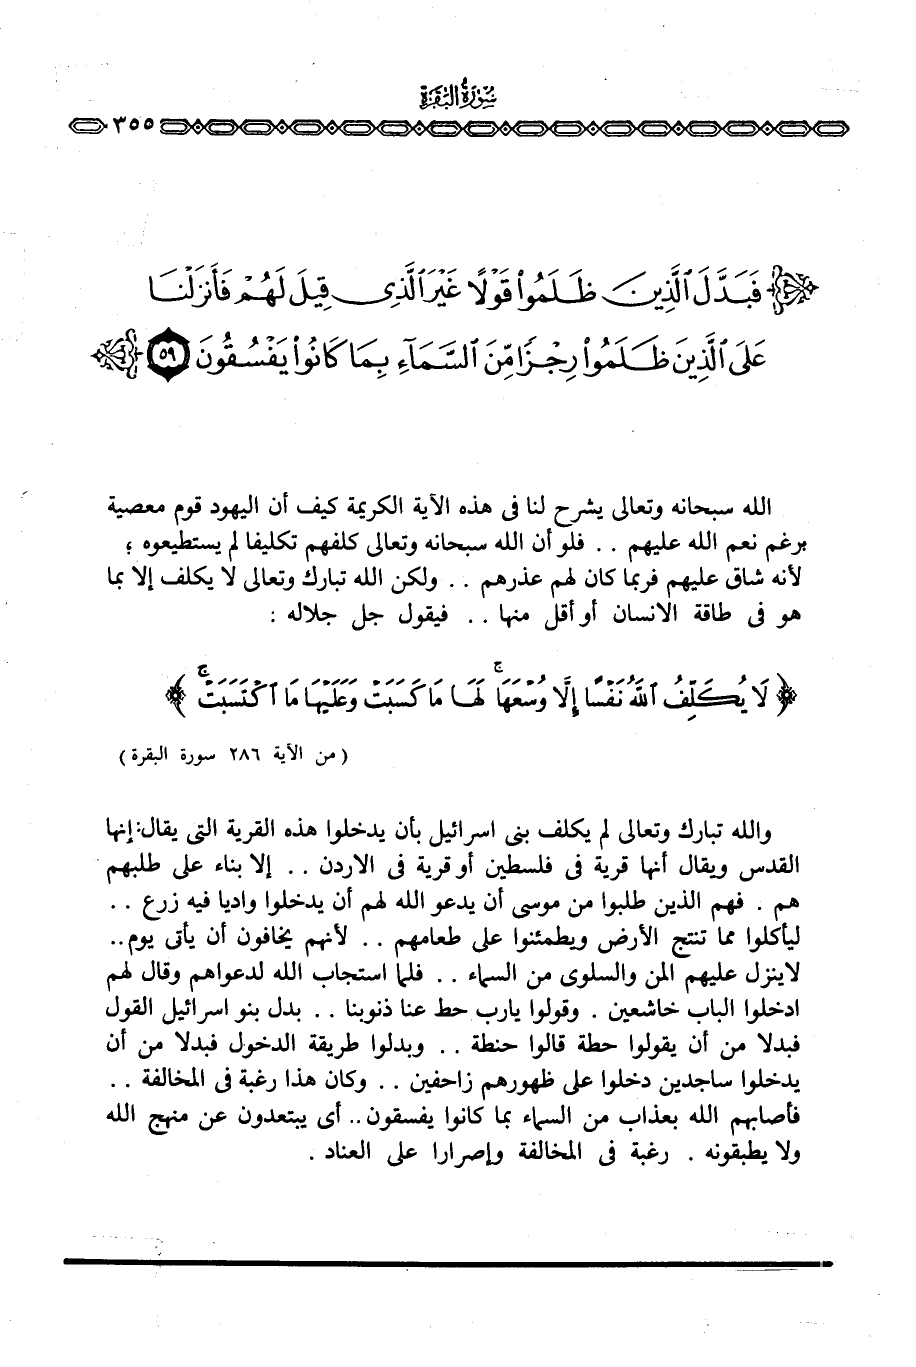 سورة البقرة
٣٥٥
فَبَدَّلَ ٱلَّذِينَ ظَلَمُواْ قَوْلًا غَيْرَ ٱلَّذِى قِيلَ لَهُمْ فَأَنزَلْنَا
عَلَى ٱلَّذِينَ ظَلَمُواْ رِجْزًا مِّنَ ٱلسَّمَآءِ بِمَا كَانُواْ يَفْسُقُونَ ٥٩
الله سبحانه وتعالى يشرح لنا فى هذه الآية الكريمة كيف أن اليهود قوم معصية
برغم نعم الله عليهم . . فلو أن الله سبحانه وتعالى كلفهم تكليفا لم يستطيعوه ؛
لأنه شاق عليهم فربما كان لهم عذرهم . . ولكن الله تبارك وتعالى لا يكلف إلا بما
هو فى طاقة الانسان أو أقل منها . . فيقول جل جلاله :
﴿ لَا يُكَلِّفُ ٱللَّهُ نَفْسًا إِلَّا وُسْعَهَا ۚ لَهَا مَا كَسَبَتْ وَعَلَيْهَا مَا ٱكْتَسَبَتْ ۗ ﴾
( من الآية ٢٨٦ سورة البقرة )
والله تبارك وتعالى لم يكلف بنى اسرائيل بأن يدخلوا هذه القرية التى يقال: إنها
القدس ويقال أنها قرية فى فلسطين أو قرية فى الاردن . . إلا بناء على طلبهم
هم . فهم الذين طلبوا من موسى أن يدعو الله لهم أن يدخلوا واديا فيه زرع . .
ليأكلوا مما تنتج الأرض ويطمئنوا على طعامهم . . لأنهم يخافون أن يأتى يوم..
لاينزل عليهم المن والسلوى من السماء . . فلما استجاب الله لدعواهم وقال لهم
ادخلوا الباب خاشعين . وقولوا يارب حط عنا ذنوبنا . . بدل بنو اسرائيل القول
فبدلا من أن يقولوا حطة قالوا حنطة . . وبدلوا طريقة الدخول فبدلا من أن
يدخلوا ساجدين دخلوا على ظهورهم زاحفين . . وكان هذا رغبة فى المخالفة . .
فأصابهم الله بعذاب من السماء بما كانوا يفسقون.. أى يبتعدون عن منهج الله
ولا يطبقونه . رغبة فى المخالفة وإصرارا على العناد .